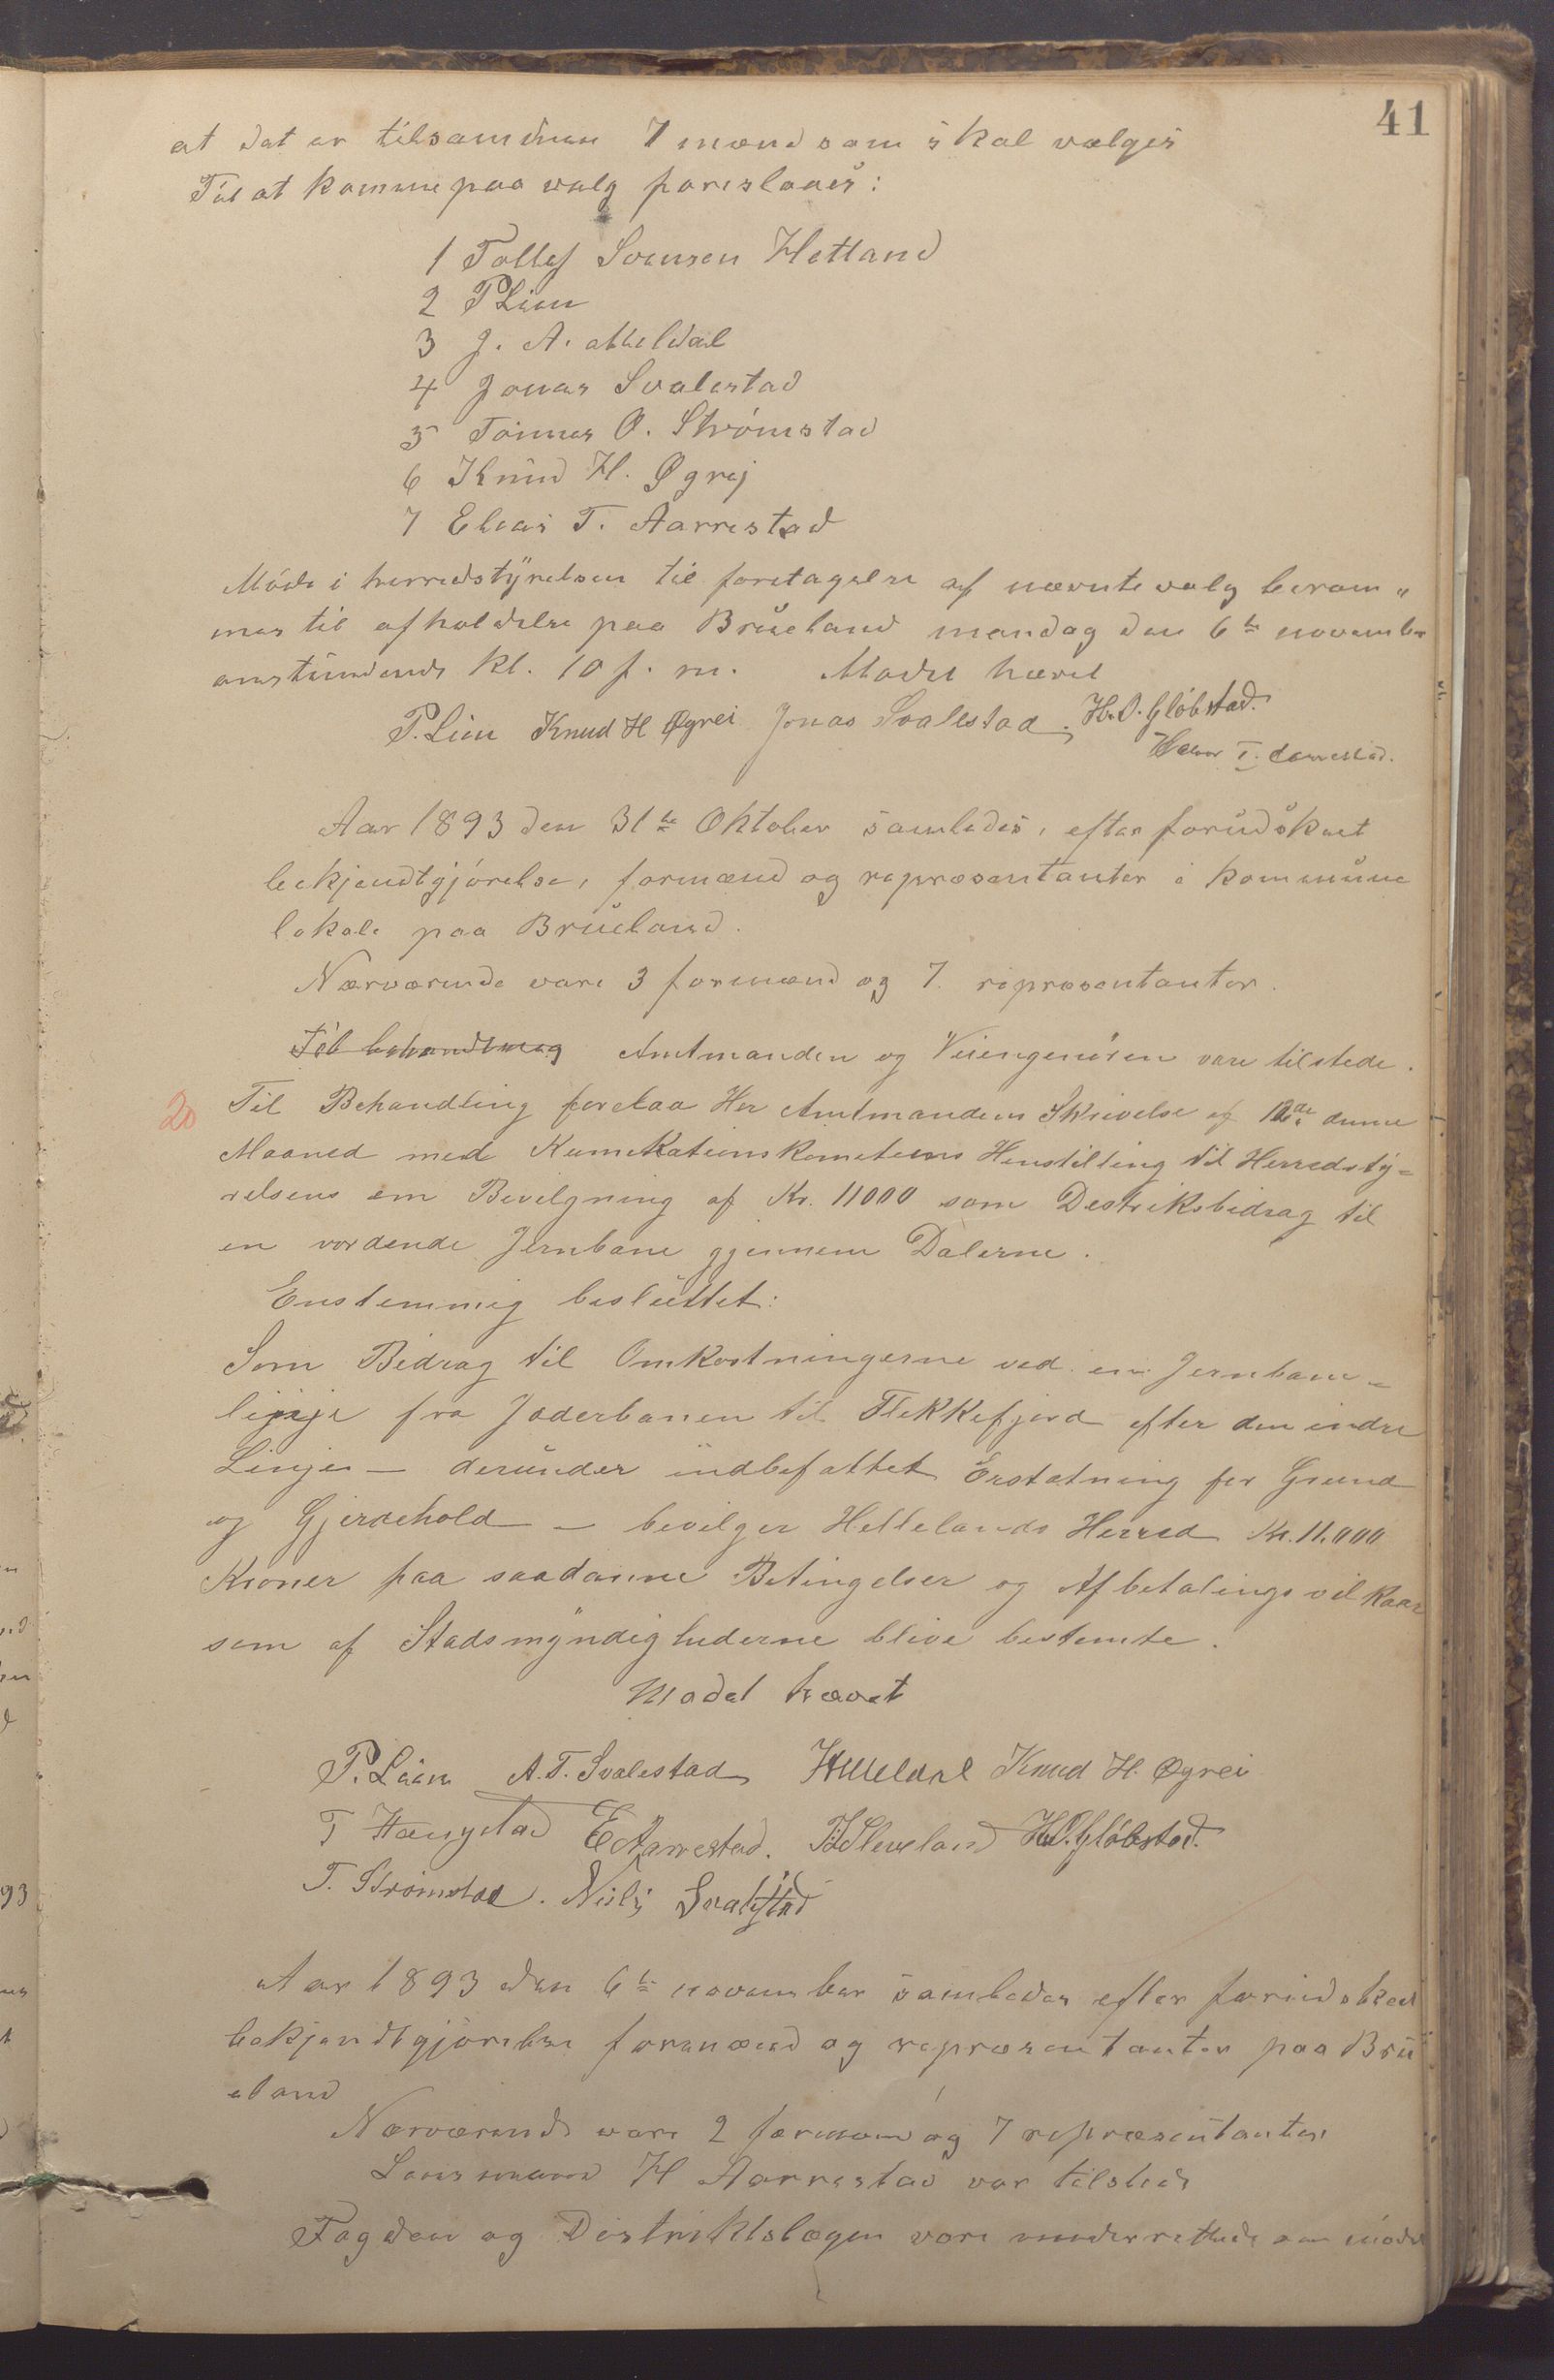 41
at det er tilsammen 7 mænd som skal vælges
Til at komme paa valg foreslaaes:
1 Tollef Svensen Hetland
2 P Lien
3 J. A. Meldal
4 Jonas Svalestad
5 Tønnes O. Strømstad
6 Knud H. Øgrej
7 Elias T. Aarrestad
Møde i herredstyrelsen til foretagelse af nævnte valg beram„
mes til afholdelse paa Brueland mandag den 6te november
anstundende kl. 10 f. m. Mødet hævet
P. Lien Knud H Øgrei Jonas Svalestad H.O. Gløbstad.
T. Aarrestad.
Aar 1893 den 31te Oktober samledes, efter forudskeet
bekjendtgjørelse, formænd og repræsentanter i kommune
lokale paa Brueland.
Nærværende vare 3 formænd og 7 repræsentanter.
Til behandling Amtmanden og Veiingeniøren vare tilstede.
20 Til Behandling forelaa Hr Amtmandens Skrivelse af denne
Maaned med Kumikationskomiteens Henstilling til Herredsty=
relsens om Bevilgning af Kr. 11000 som Destriksbidrag til
en vordende Jernbane gjennem Dalerne.
Enstemmig besluttet:
Som Bidrag til Omkostningerne ved en Jernbane=
linje fra Jæderbanen til Flekkefjord efter den indre
Linje — derunder indbefattet Erstatning for Grund
og Gjerdehold — bevilger Hellelands Herred Kr. 11.000
Kroner paa saadanne Betingelser og Afbetalingsvilkaar
som af Stadsmyndighederne blive bestemte.
Mødet hævet
P. Lien A. T. Svalestad Meldal Knud H. Øgrei
T Haugstad E Aarrestad. Sleveland H.O. Gløbstad.
T. Strømstad. Nils Svalestad
Aar 1893 den 6te november samledes efter forudskeet
bekjendtgjørelse formænd og repræsentanter paa Bru
eland
Nærværende vare 2 formænd og 7 repræsentanter
Lensmand H Aarrestad var tilstede
Fogden og Distriktslægen vare underrettede om mødet